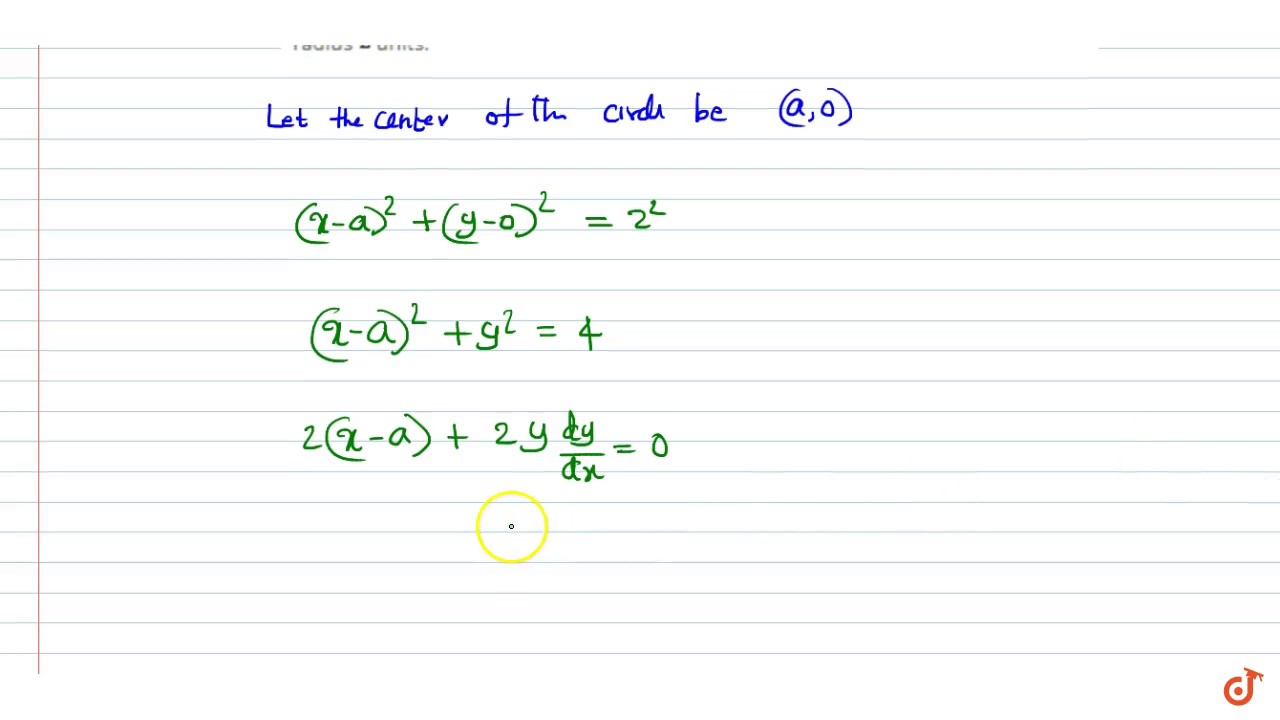 radius 2 units.
Let the center of the circle be (a,0)
(x-a)² +(y-0)² = 2²
(x-a)² +y² = 4
2(x-a) + 2y dy/dx = 0